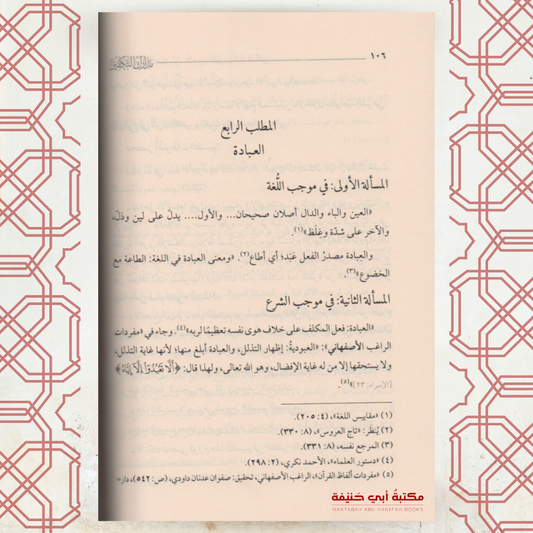 ١٠٦
المطلب الرابع
العبادة
المسألة الأولى: في موجب اللُّغة
«العين والباء والدال أصلان صحيحان... والأول.... يدلّ على لين وذلّ،
والآخر على شدّة وغِلظ»(١).
والعبادة مصدرُ الفعل عَبَد؛ أي أطاع(٢). «ومعنى العبادة في اللغة: الطاعة مع
الخضوع»(٣).
المسألة الثانية: في موجب الشرع
«العبادة: فعل المكلف على خلاف هوى نفسه تعظيمًا لربه»(٤). وجاء في «مفردات
الراغب الأصفهاني»: «العبوديةُ: إظهار التذلل، والعبادة أبلغ منها؛ لأنها غاية التذلل،
ولا يستحقها إلا من له غاية الإفضال، وهو الله تعالى، ولهذا قال: ﴿أَلَّا تَعْبُدُوٓاْ إِلَّآ إِيَّاهُ﴾
[الإسراء: ٢٣]»(٥).
(١) «مقاييس اللغة»، (٤: ٢٠٥).
(٢) يُنظَر: «تاج العروس»، (٨: ٣٣٠).
(٣) المرجع نفسه، (٨: ٣٣١).
(٤) «دستور العلماء»، الأحمد نكري، (٢: ٢٩٨).
(٥) «مفردات ألفاظ القرآن»، الراغب الأصفهاني، تحقيق: صفوان عدنان داودي، (ص: ٥٤٢)، دار-
مكتبة أبي حنيفة
MAKTABAH ABU HANIFAH BOOKS